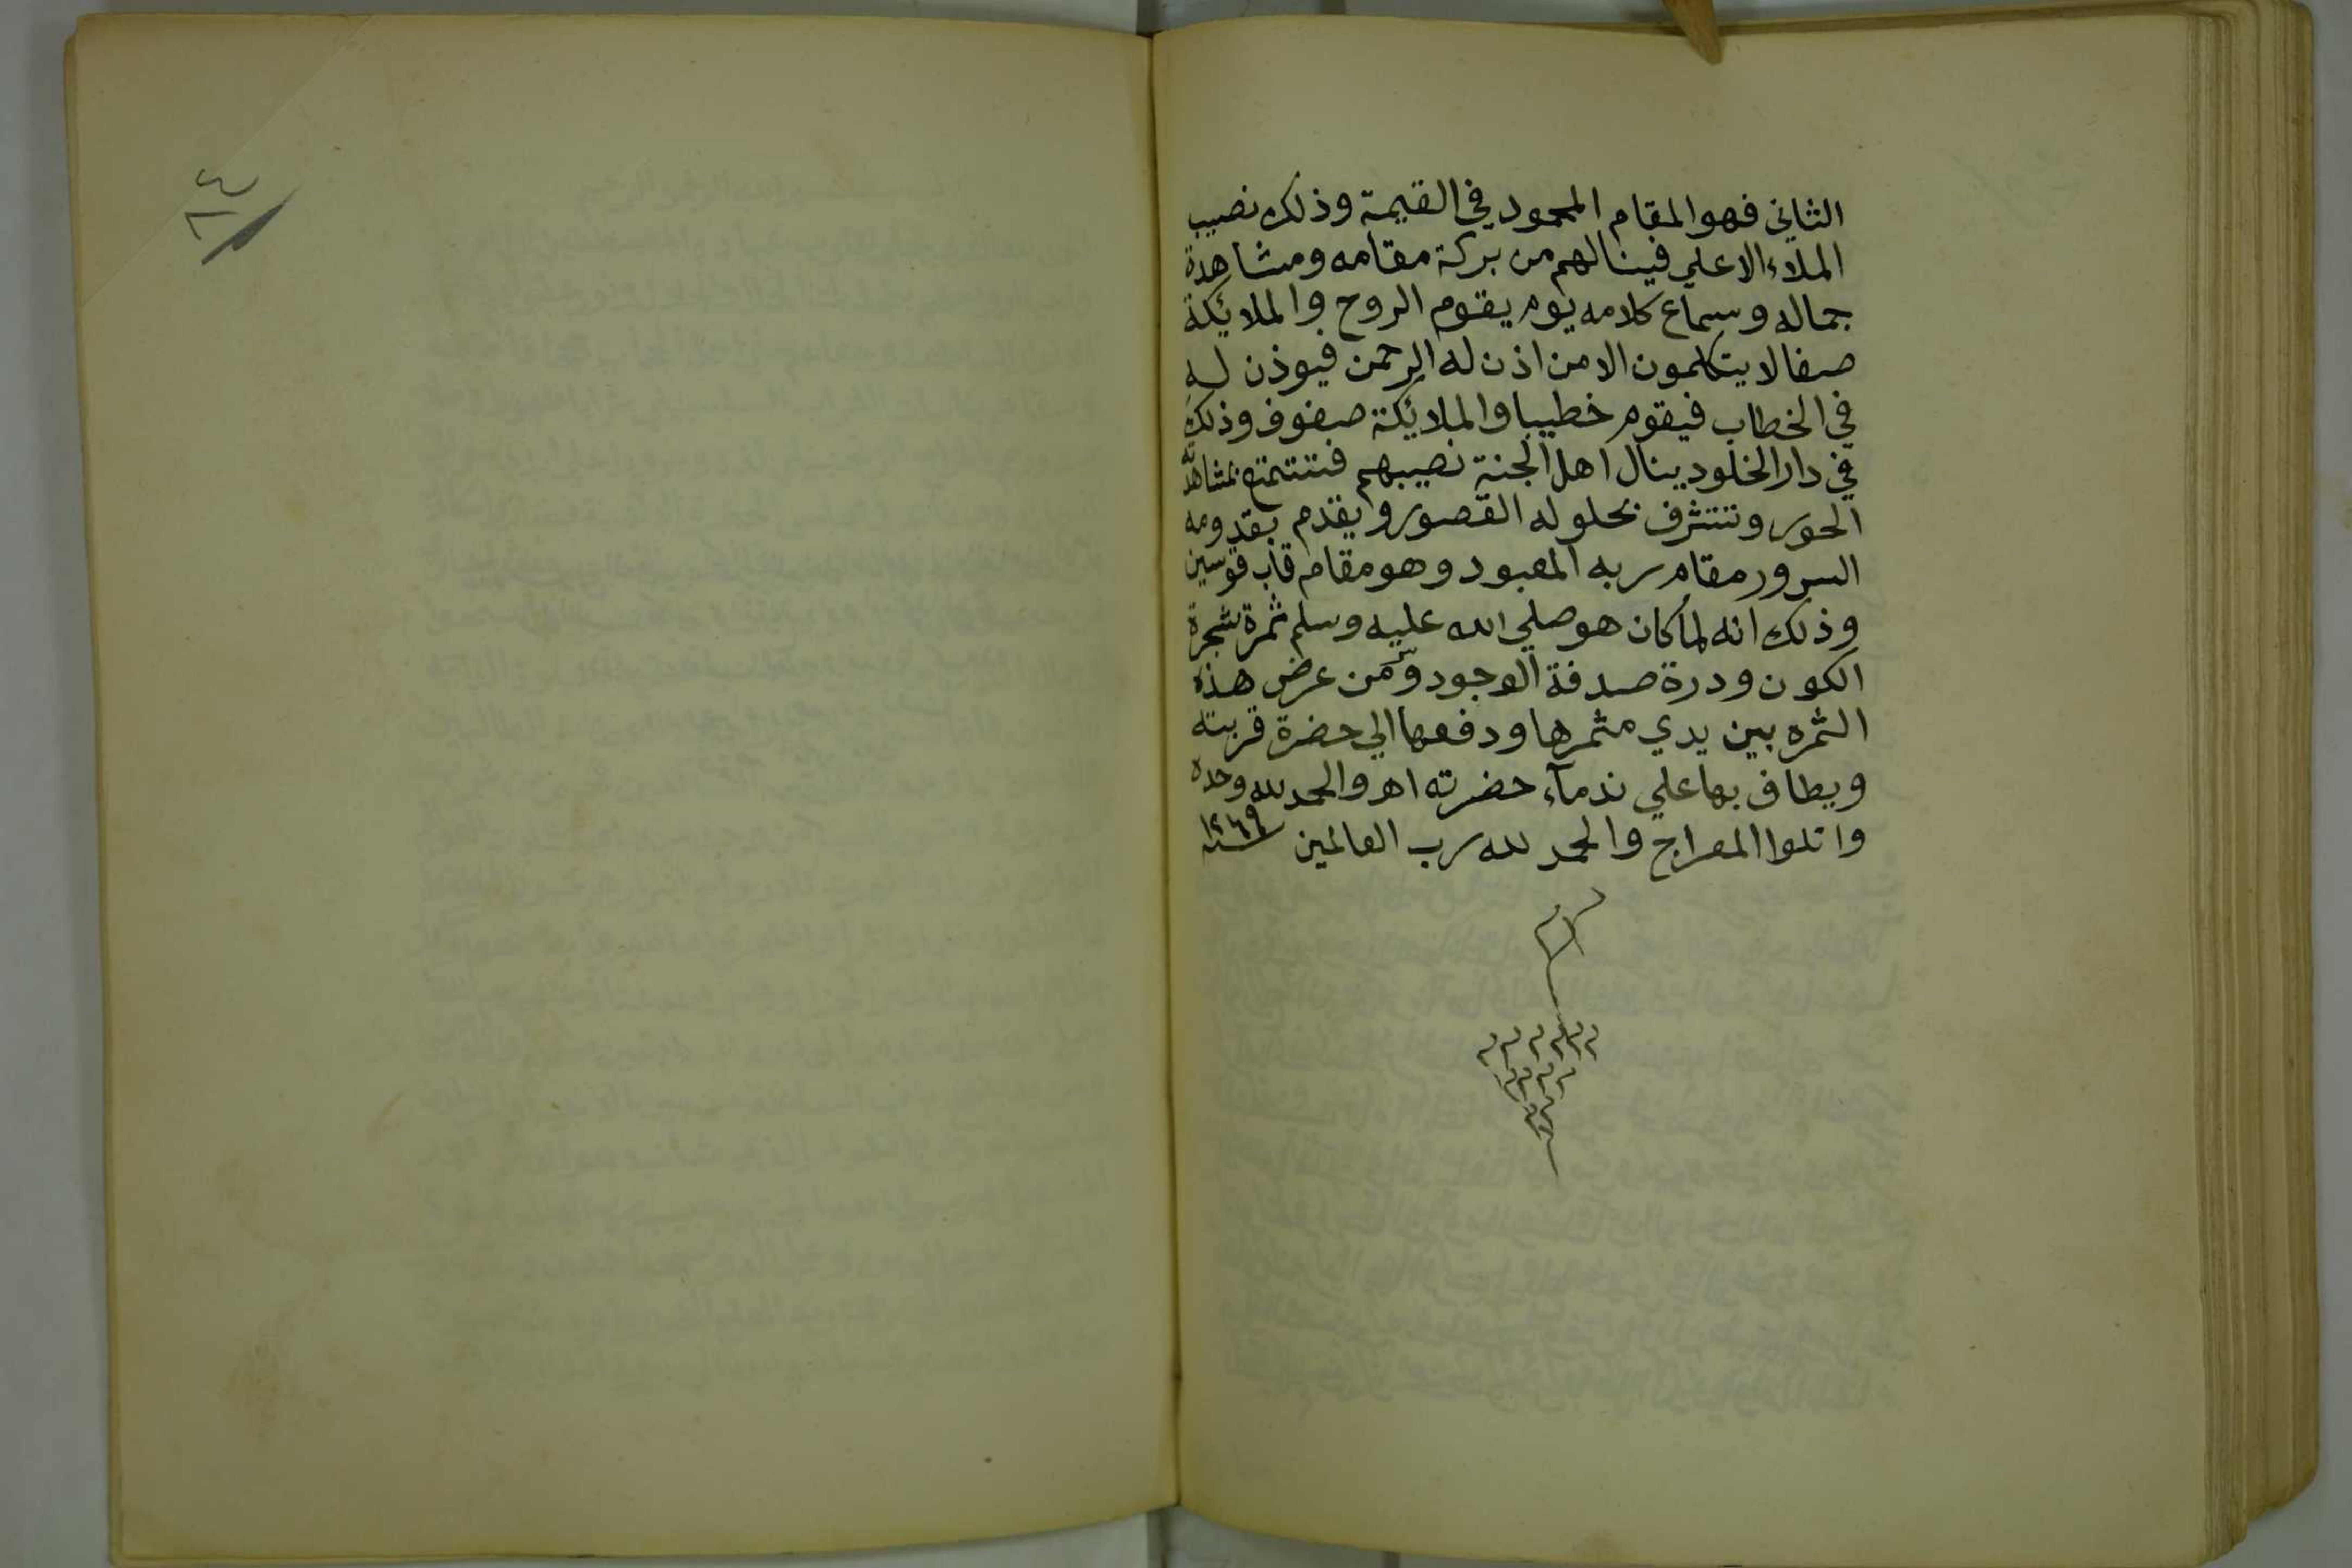 الثاني فهو المقام المحمود في القيمة وذلك نصيب
الملاء الاعلي فينالهم من بركة مقامه ومشاهدة
جماله وسماع كلامه يوم يقوم الروح والملائكة
صفا لا يتكلمون الا من اذن له الرحمن فيوذن له
في الخطاب فيقوم خطيبا والملائكة صفوف وذلك
في دار الخلود ينال اهل الجنة نصيبهم فتتمتع بمشاهدته
الحور وتتشرف بحلوله القصور ويقدم بقدومه
السرور مقام ربه المعبود وهو مقام قاب قوسين
وذلك انه لما كان هو صلي الله عليه وسلم ثمرة شجرة
الكون ودرة صدفة الوجود و عرض هذه
الثمره بين يدي مثمرها ودفعها الي حضرة قربته
ويطاف بها علي ندمآء حضرته اهـ والحمد لله وحده
واتلوا المعراج والحمد لله رب العالمين سنة ١٢٦٩